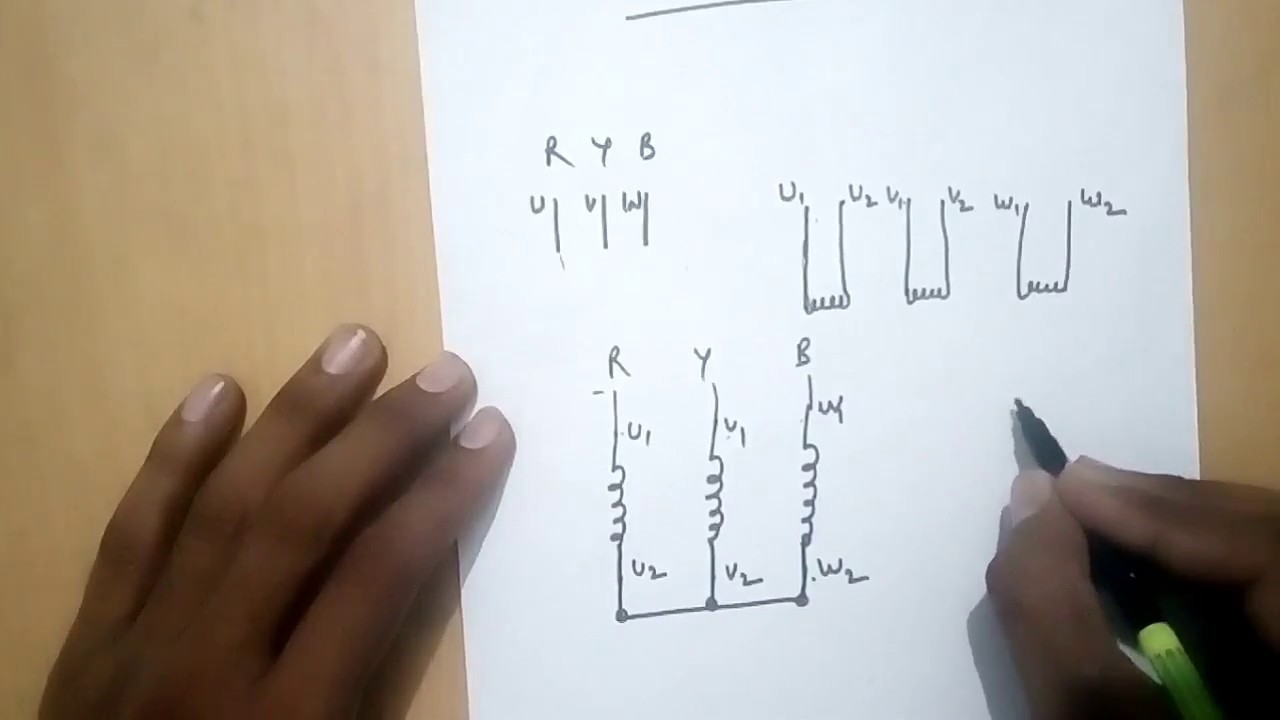 R Y B
U V W
U1 U2 V1 V2 W1 W2
R Y B
U1 V1 W1
U2 V2 W2